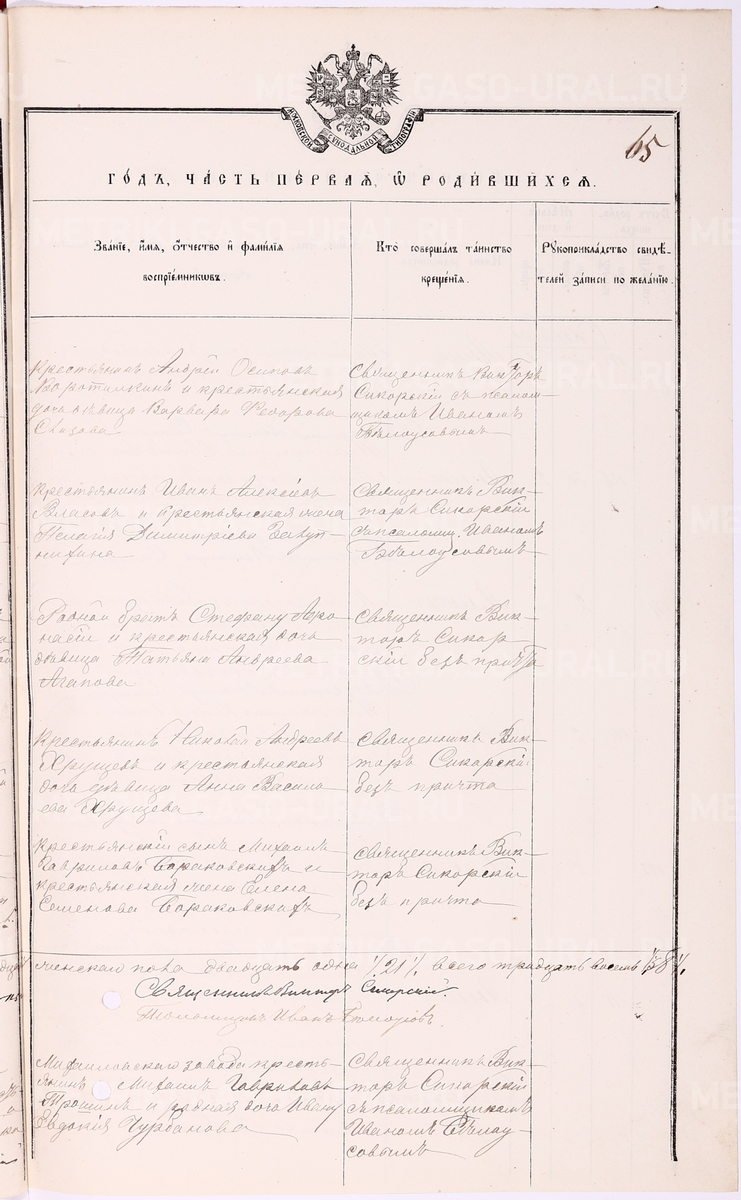 МОСКОВСКОЙ СѴНОДАЛЬНОЙ ТИПОГРАФІИ
65
ГОДЪ, ЧАСТЬ ПЕРВАЯ, Ѡ РОДИВШИХСЯ.
Званіе, имя, отчество и фамилія
воспріемниковъ.
Кто совершалъ таинство
крещенія.
Рукоприкладство свидѣ-
телей записи по желанію.
Крестьянинъ Андрей Осиповъ
и крестьянская
дочь дѣвица Варвара Федорова
Священникъ Викторъ
Сикорскій съ псалом-
щикомъ Иваномъ
Бѣлоусовымъ
Крестьянинъ Иванъ Алексѣевъ
Власовъ и крестьянская жена
Пелагія Димитріева
Священникъ Вик-
торъ Сикорскій
съ псаломщ. Иваномъ
Бѣлоусовымъ
Родной братъ Стефану
и крестьянская дочь
дѣвица Татьяна Андреева
Агапова
Священникъ Вик-
торъ Сикор
скій безъ причта
Крестьянинъ Николай Андреевъ
Хрущевъ и крестьянская
дочь дѣвица Анна Василь
ева Хрущева
Священникъ Вик-
торъ Сикорскій
безъ причта
Крестьянскій сынъ Михаилъ
Гавриловъ Бараковскихъ и
крестьянская жена Елена
Семенова Бараковскихъ
Священникъ Вик-
торъ Сикорскій
безъ причта
женскаго пола двадцать одна /21/, всего тридцать восемь /38/,
Священникъ Викторъ Сикорскій.
Псаломщикъ Иванъ Бѣлоусовъ
Михайловскаго завода кресть-
янинъ Михаилъ Гавриловъ
Трошинъ и родная дочь Ивану
Евдокія Чурбанова
Священникъ Вик-
торъ Сикорскій
съ псаломщикомъ
Иваномъ Бѣлоу-
совымъ